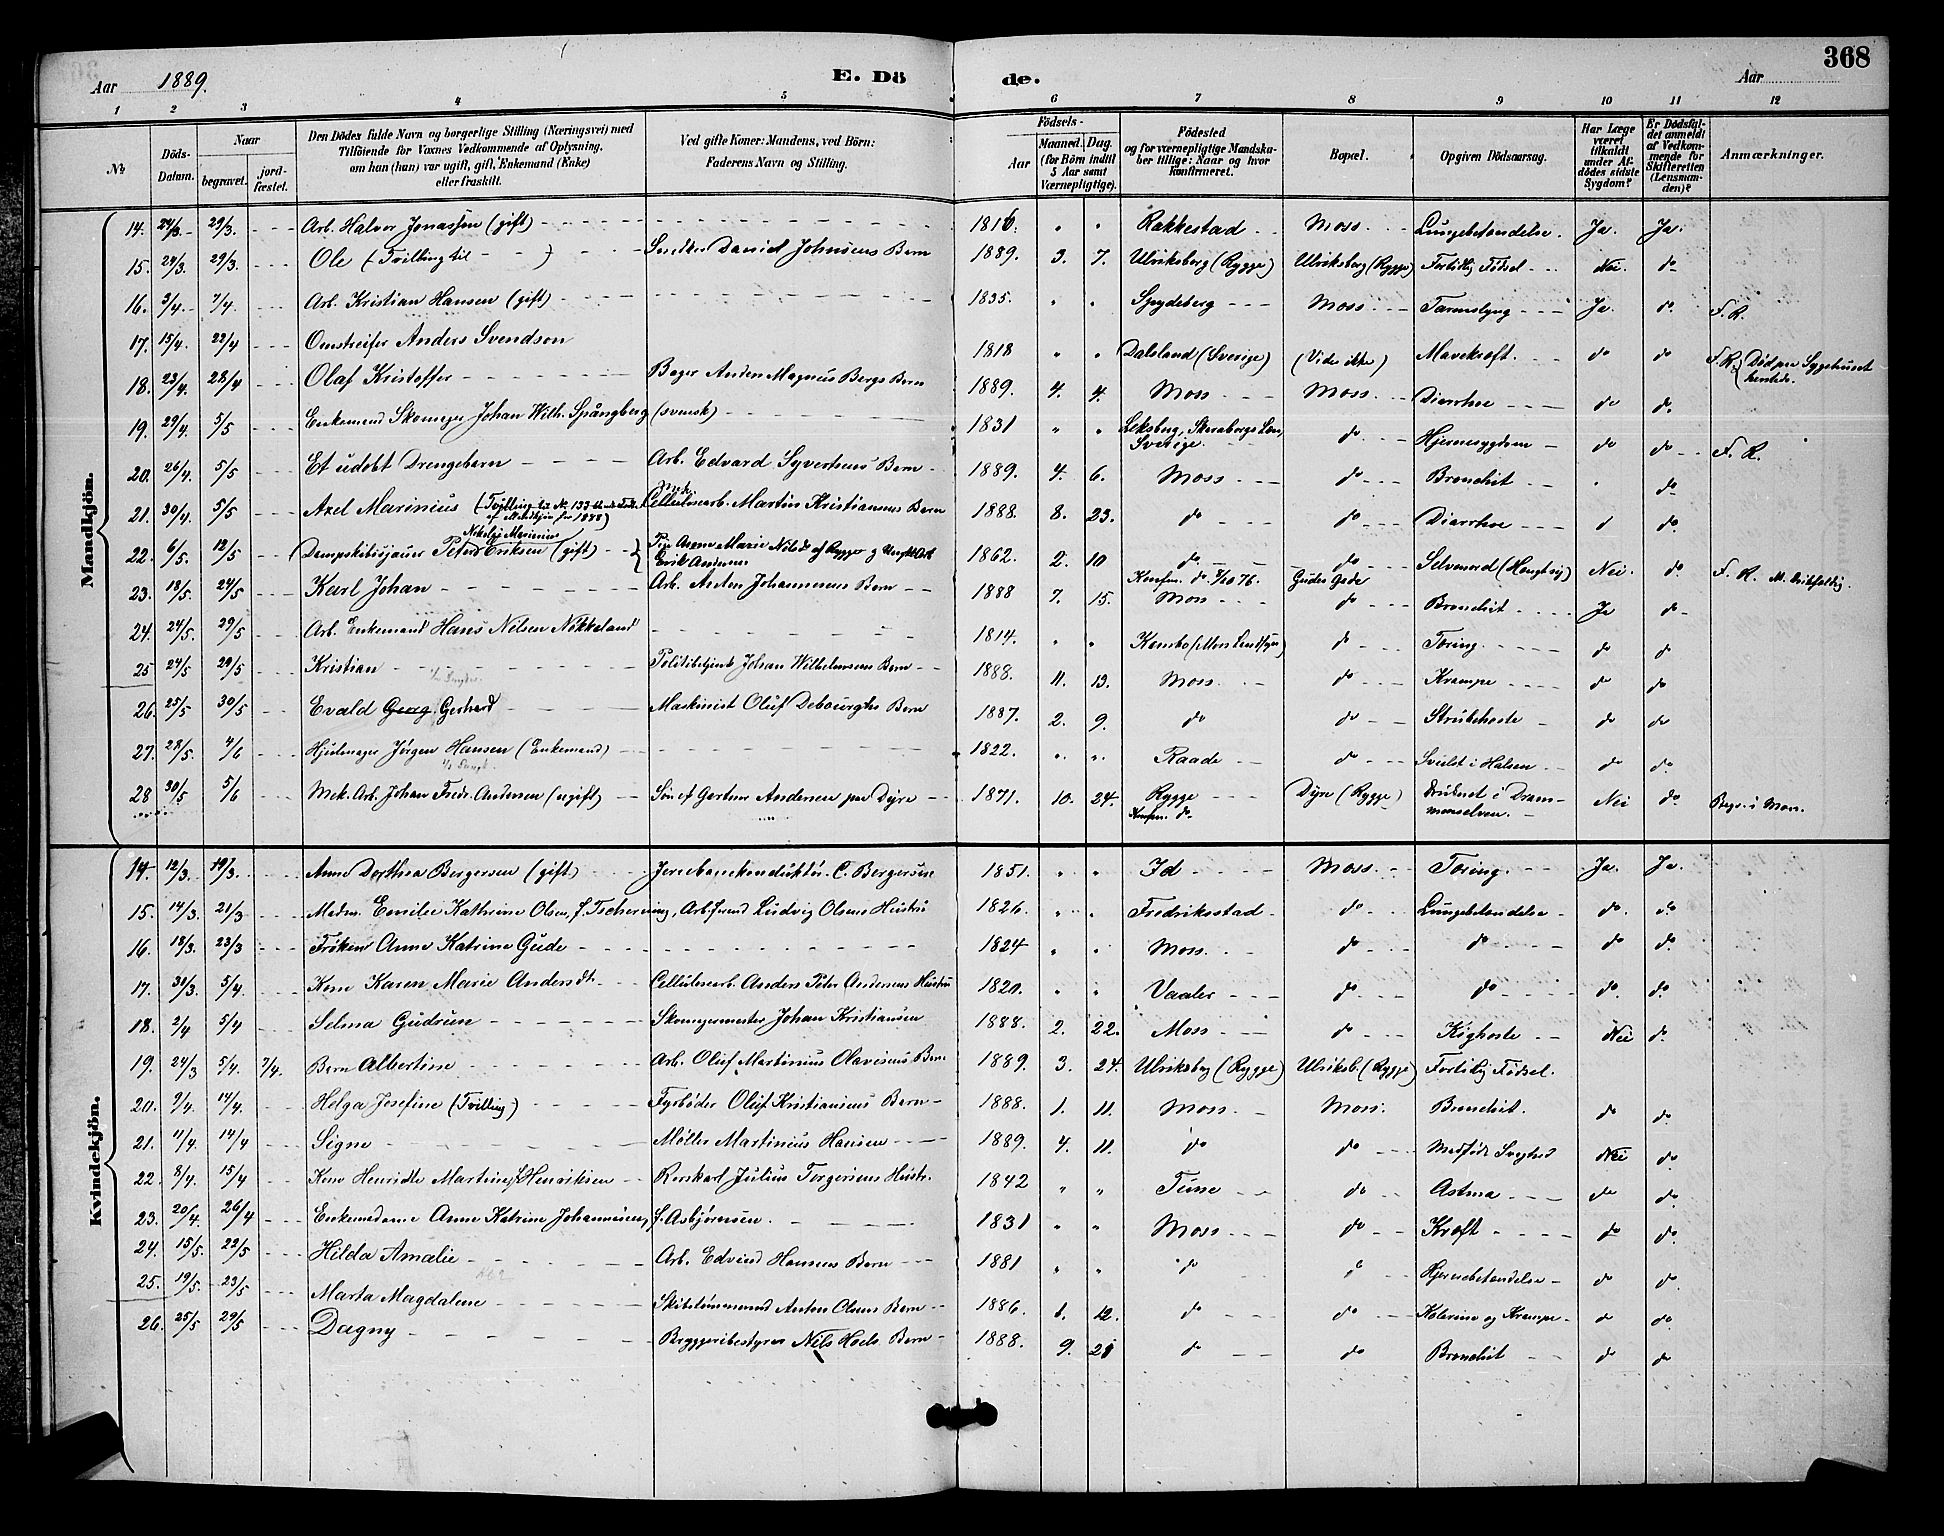 368
Aar 1889.
E. Dö de.
Aar
1 2 3 4 5 6 7 8 9 10 11 12
No
Döds-Datum.
Naar
begravet.
jordfæstet.
Den Dödes fulde Navn og borgerlige Stilling (Næringsvei) med
Tilföiende for Voxnes Vedkommende af Oplysning,
om han (hun) var ugift, gift, Enkemand (Enke)
eller fraskilt.
Ved gifte Koner: Mandens, ved Börn:
Faderens Navn og Stilling.
Födsels-
Aar
Maaned. Dag.
(for Börn indtil 5 Aar samt Værnepligtige).
Födested
og for værnepligtige Mandskaber tillige: Naar og hvor konfirmeret.
Bopæl.
Opgiven Dödsaarsag.
Har Læge været tilkaldt under Afdödes sidste Sygdom?
Er Dödsfaldet anmeldt af Vedkommende for Skifteretten (Lensmanden)?
Anmærkninger.
Mandkjön.
14. 24/3. 29/3. Arb. Halvor Jonassen (gift) 1816. " " Rakkestad Moss Lungebetændelse. Ja. Ja.
15. 24/3. 29/3. Ole (Tvilling til - ) Daniel Johnsens Barn 1889. 3. 7. Ulriksberg (Rygge) Ulriksberg (Rygge) Fortidlig Fødsel Nei. do
16. 3/4. 7/4 Arb. Kristian Hansen (gift) 1835. " " Spydeberg Moss Tarmslyng Ja. do. F. R.
17. 15/4. 22/4 Omstreifer Anders Svendsen 1818 " " Dalsland (Sverige) (Vides ikke) Mavekræft. do do F. R. (Død paa Sygehuset
18. 23/4. 28/4 Olaf Kristoffer Bager Anders Magnus Bergs Barn 1889. 4. 4. Moss Moss Diarrhoe do do
19. 29/4. 5/5 Enkemand Skomager Johan Wilh. Spångberg (svensk) 1831 " " Leksberg, Skaraborgs Len, Sverige. do Hjernesygdom do do F. R.
20. 26/4. 5/5 Et udøbt Drengebarn Arb. Edvard Syvertsens Barn 1889. 4. 6. Moss do Bronchit do
21. 30/4. 5/5 Axel Marinius (Tvilling til No. 133
af Mandkjøn for 1888) Cellulosearb. Martin Kristiansens Barn 1888. 8. 23. do do Diarrhoe do
22. 6/5. 12/5 Nikolai Marinius
Peter Eriksen (gift) Erik Andersen 1862. 2. 10 do do Selvmord Nei. do F. R.
Konfm. do 1876. Gudes Gade
23. 18/5. 24/5 Karl Johan Arb. Anton Johannesens Barn 1888 7. 15. Moss do Bronchit Ja do
24. 24/5. 29/5 Arb. Enkemand Hans Nilsen Nøkkeland 1814. " " Kambo (Moss Landsogn) do Tæring. do do
25 24/5. 29/5 Kristian Politibetjent Johan Wilhelmsens Barn 1888. 11. 13. Moss. do Krampe do do
26. 25/5 30/5 Evald Georg Gerhard Maskinist Oluf Debourghs Barn 1887. 2. 9. do do Strubehoste do do
27. 28/5. 4/6 Hjulmager Jørgen Hansen (Enkemand) 1822. " " Raade do Svulst i Halsen do do
28 30/5 5/6 Mek. Arb. Johan Fredr. Andersen (ugift) Søn af Gartner Andersen paa Dyre 1871. 10. 24. Rygge
Konfm. do Dyre (Rygge) Druknet i Drammenselven. Nei do Begr. i Moss.
Kvindekjön.
14. 12/3. 19/3. Anne Dorthea Bergersen (gift) Jernbanekonduktør C. Bergersen 1851. " " Id Moss Tæring. Ja. Ja.
15. 14/3. 21/3 Madm. Emilie Kathrine Olsen, f. Tscherning, Ludvig Olsens Hustru 1826. " " Fredriksstad do Lungebetændelse do. do
16. 18/3. 23/3 Frøken Anne Katrine Gude 1824 " " Moss. do do do do
17. 30/3. 5/4. Kone Karen Marie Andersdt. Cellulosearb. Anders Peter Andersens Hustru 1820. " " Vaaler do do do. do
18. 2/4 5/4 Selma Gudrun Skomagermester Johan Kristiansen 1888. 2. 22. Moss do Kighoste Nei do
19. 24/3 5/4. 7/4. Barn Albertine Arb. Oluf Martinius Olavesens Barn 1889. 3. 24. Ulriksberg (Rygge) Ulriksb. (Rygge) Fortidlig Fødsel.
20. 9/4. 14/4. Helga Josefine (Tvilling) Fyrbøder Oluf Kristiansens Barn 1888. 1. 11. Moss. Moss. Bronchit. do do
21. 11/4. 14/4 Signe Møller Martinius Hansen 1889. 4. 11. do do Medfødt Svaghed Nei do
22. 8/4. 15/4 Kone Henriette Martine f. Henriksen Julius Torgersens Hustr. 1842 " " Tune do Astma do do
23. 20/4. 26/4 Enkemadame Anne Katrine Johannesen, f. Asbjørnsen. 1831 " " Moss do Kræft do do
24. 15/5. 22/5 Hilda Amalie Arb. Edvind Hansens Barn 1881 " " do do Hjernebetændelse do do
25. 19/5. 23/5 Marta Magdalene Skibstømmermand Anton Olsens Barn 1886. 1. 12. do do Kolerine og Krampe do do
26. 25/5 29/5 Dagny Bryggeribestyrer Nils Hoels Barn 1888. 9. 21 do do Bronchit do do